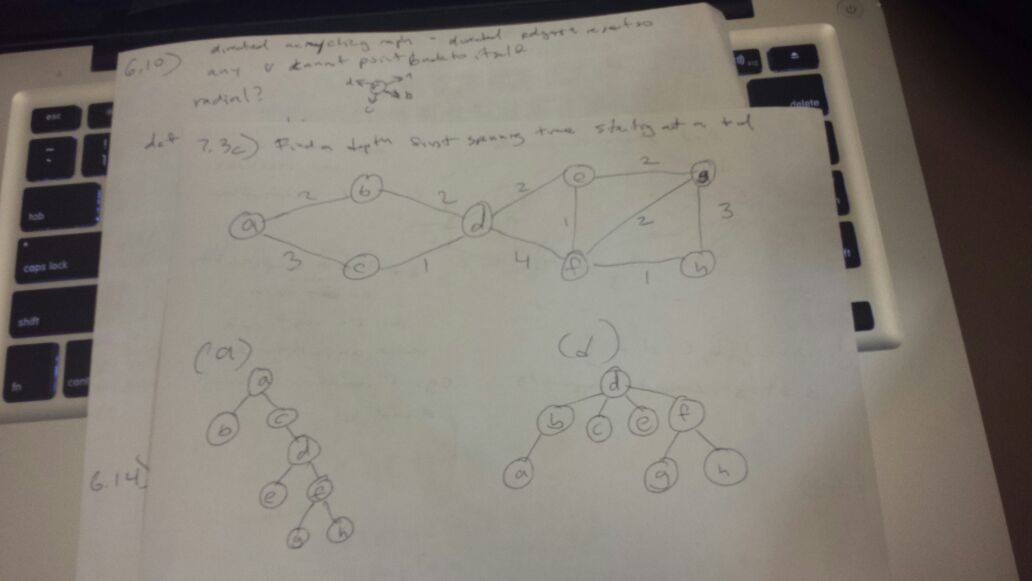 6.10) directed graph - directed edges so
any v cannot point back to itself
radial?
d a
b
c
def 7.3c) Find a depth first spanning tree starting at a + d
b 2 2 2 e 2 g
a d 1 2 3
3 c 1 4 f 1 h
(a) (d)
a d
b c b c e f
d a g h
6.14)
e f
g h
esc
tab
caps lock
shift
fn
delete